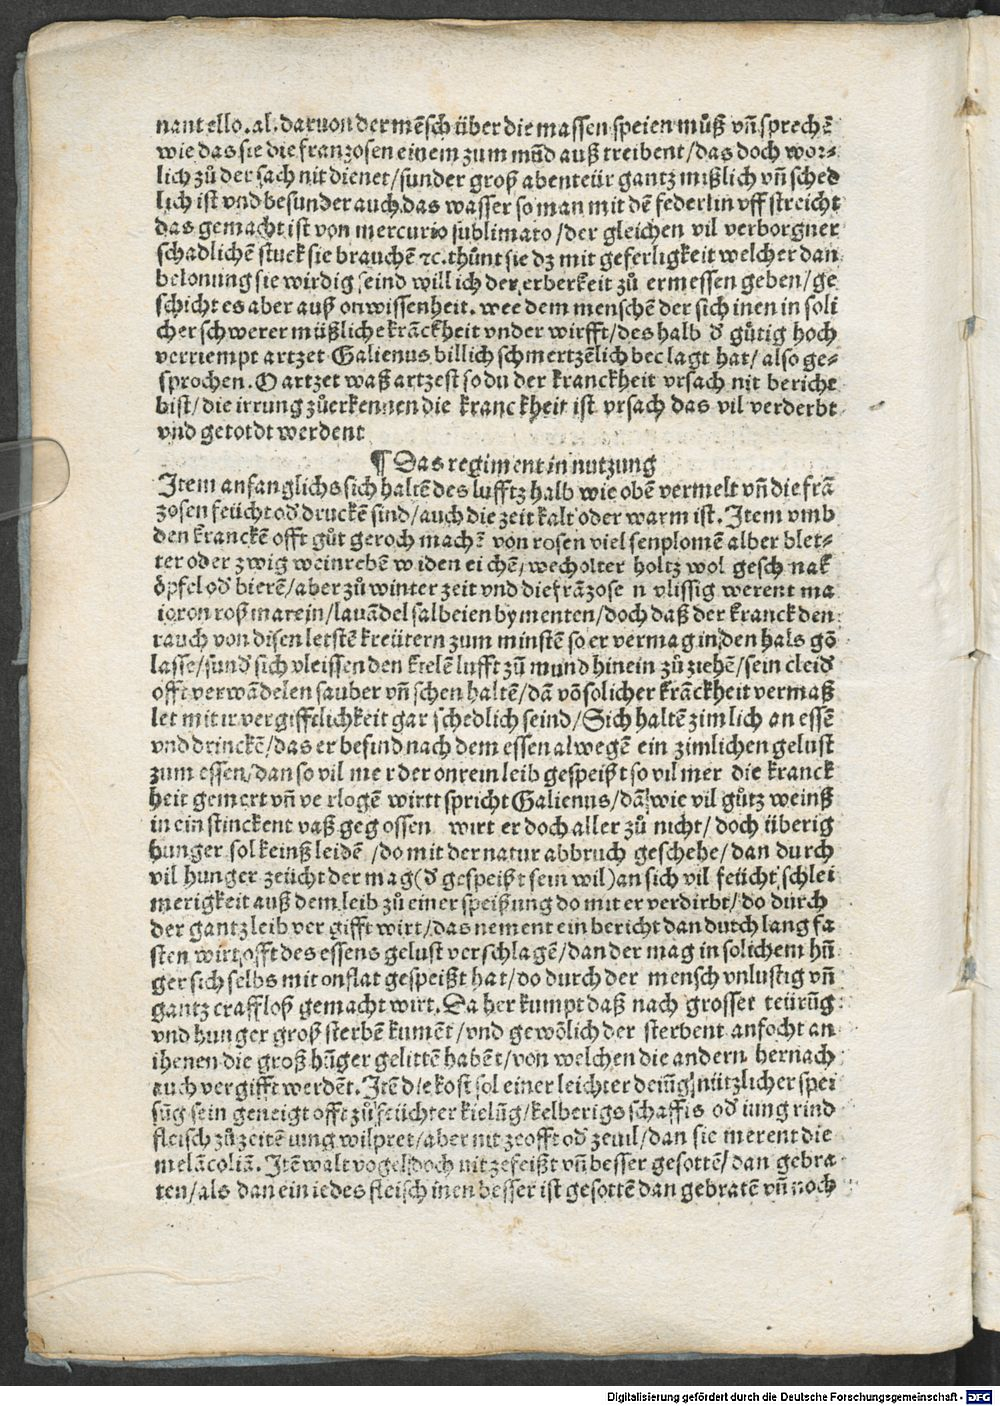 nant ello. al. daruon der mēsch über die massen speien můß vn̄ sprechē
wie das sie die franzosen einem zum mūd auß treibent/das doch wor⸗
lich zů der sach nit dienet/sunder groß abenteür gantz mißlich vn̄ sched
lich ist vnd besunder auch das wasser so man mit dē federlin vff streicht
das gemacht ist von mercurio sublimato/der gleichen vil verborgner
schadlichē stuck sie brauchē ⁊c. thůnt sie dz mit geferligkeit welcher dan
belonung sie wirdig seind will ich der erberkeit zů ermessen geben/ge
schicht es aber auß onwissenheit. wee dem menschē der sich inen in soli
cher schwerer müßliche krāckheit vnder wirfft/des halb d̄ gůtig hoch
verriempt artzet Galienus billich schmertzēlich beclagt hat/also ge⸗
sprochen. O artzet waß artzest so du der kranckheit vrsach nit bericht
bist/die irrung zůerkennen die kranckheit ist vrsach das vil verderbt
vnd getotdt werdent
¶ Das regiment in nutzung
Item anfanglichs sich haltē des lufftz halb wie obē vermelt vn̄ die frā
zosen feücht od̄ druckē sind/auch die zeit kalt oder warm ist. Item vmb
den kranckē offt gůt geroch machē von rosen viel senplomē alber blet⸗
ter oder zwig weinrebēn widen eichē/wecholter holtz wol geschnak
öpfel od̄ bierē/aber zů winter zeit vnd die frāzosen vlissig werent ma
ioron roß marein/lauādel salbeien bymenten/doch daß der kranck den
rauch von disen letstē kreütern zum minstē so er vermag in den hals gō
lasse/sund̄ sich vleissen den kielē lufft zū mund hinein zů ziehē/sein cleid̄
offt verwādelen sauber vn̄ schen haltē/dā vō solicher krāckheit vermaß
let mit ir vergifftlichkeit gar schedlich seind/Sich haltē zimlich an essē
vnd drinckē/das er befind nach dem essen alwegē ein zimlichen gelust
zum essen/dan so vil mer der onrein leib gespeißt so vil mer die kranck
heit gemert vn̄ verlogē wirtt spricht Galienus/dā wie vil gůtz weinß
in ein stinckent vaß gegossen wirt er doch aller zů nicht/doch überig
hunger sol keinß leidē/do mit der natur abbruch geschehe/dan durch
vil hunger zeücht der mag (d̄ gespeißt sein wil) an sich vil feücht schlei
merigkeit auß dem leib zů einer speißung do mit er verdirbt/do durch
der gantz leib vergifft wirt/das nement ein bericht dan durch lang fa
sten wirt offt des essens gelust verschlagē/dan der mag in solichem hū
ger sich selbs mit onflat gespeißt hat/do durch der mensch vnlustig vn̄
gantz craffloß gemacht wirt. Da her kumpt daß nach grosser teürūg
vnd hunger groß sterbē kumēt/vnd gewōlich der sterbent anfocht an
ihenen die groß hūger gelittē habēt/von welchen die andern hernach
auch vergifft werdēt. Itē die kost sol einer leichter deiūg nützlicher spei
sūg sein geneigt offt zů feüchter kielūg/kelberigs schaffis od̄ iung rind
fleisch zů zeitē iung wilpret/aber nit zeofft od̄ zeuil/dan sie merent die
melācoliā. Itē walt vogel doch nit zefeißt vn̄ besser gesottē/dan gebra
ten/als dan ein iedes fleisch inen besser ist gesottē dan gebratē vn̄ noch
Digitalisierung gefördert durch die Deutsche Forschungsgemeinschaft - DFG